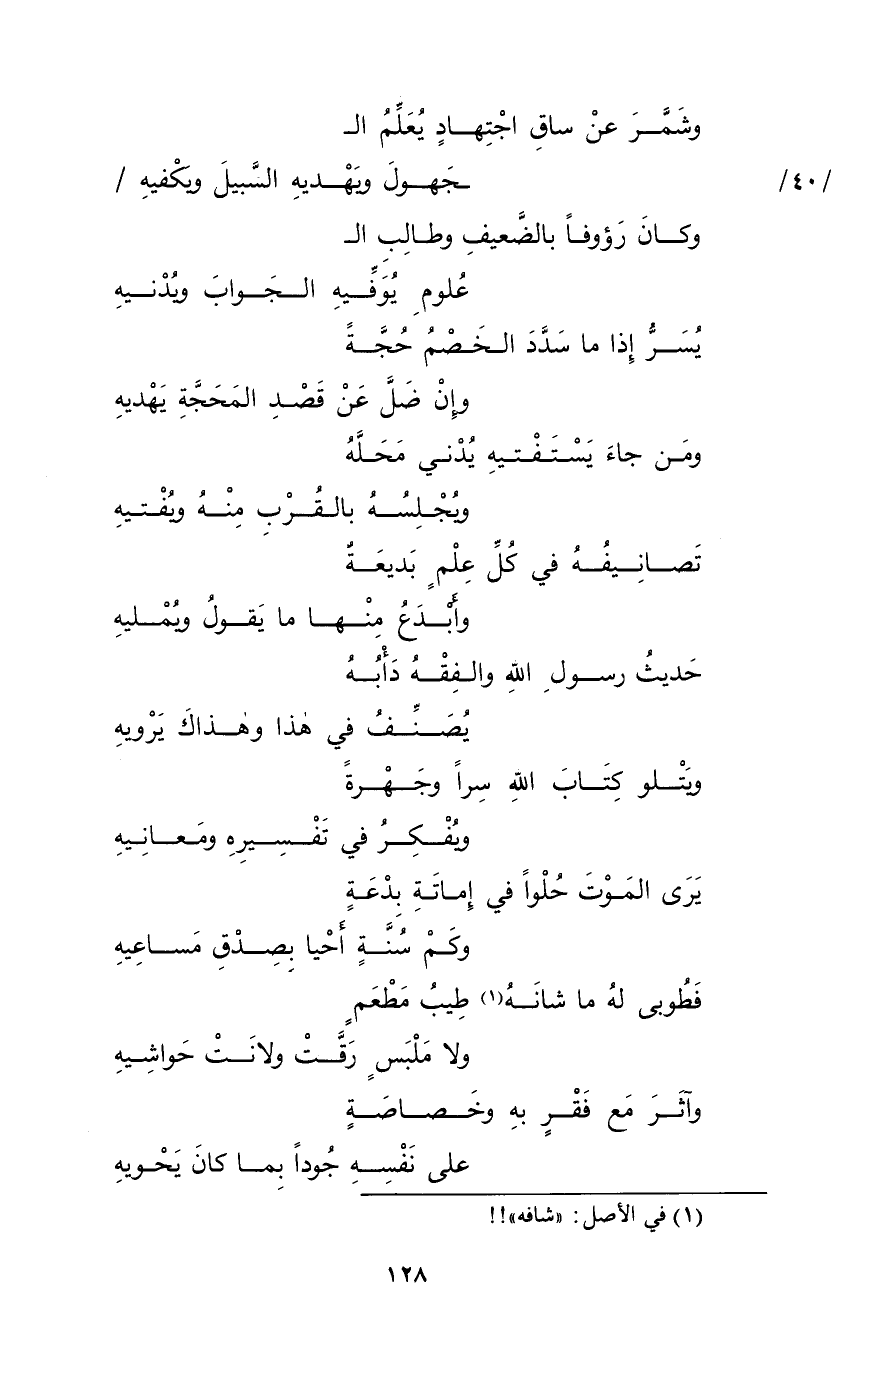 وشَمَّرَ عنْ ساقِ اجْتِهادٍ يُعَلِّمُ الـ
/٤٠/ ـجَهولَ ويَهْديهِ السَّبيلَ ويَكْفيهِ /
وكانَ رَؤوفاً بالضَّعيفِ وطالِبِ الـ
عُلومِ يُوَفِّيهِ الجَوابَ ويُدْنيهِ
يُسَرُّ إذا ما سَدَّدَ الخَصْمُ حُجَّةً
وإنْ ضَلَّ عَنْ قَصْدِ المَحَجَّةِ يَهْديهِ
ومَن جاءَ يَسْتَفْتيهِ يُدْني مَحَلَّهُ
ويُجْلِسُهُ بالقُرْبِ مِنْهُ ويُفْتيهِ
تَصانِيفُهُ في كُلِّ عِلْمٍ بَديعَةٌ
وأَبْدَعُ مِنْها ما يَقولُ ويُمْليهِ
حَديثُ رسولِ اللهِ والفِقْهُ دَأْبُهُ
يُصَنِّفُ في هٰذا وهٰذاكَ يَرْويهِ
ويَتْلو كِتَابَ اللهِ سِراً وجَهْرةً
ويُفْكِرُ في تَفْسِيرِهِ ومَعانِيهِ
يَرَى المَوْتَ حُلْواً في إماتَةِ بِدْعَةٍ
وكَمْ سُنَّةٍ أَحْيا بِصِدْقِ مَساعِيهِ
فَطُوبى لهُ ما شانَهُ(١) طِيبُ مَطْعَمٍ
ولا مَلْبَسٍ رَقَّتْ ولانَتْ حَواشِيهِ
وآثَرَ مَع فَقْرٍ بِهِ وخَصاصَةٍ
على نَفْسِهِ جُوداً بِما كانَ يَحْويهِ
(١) في الأصل: «شافه»!!
١٢٨